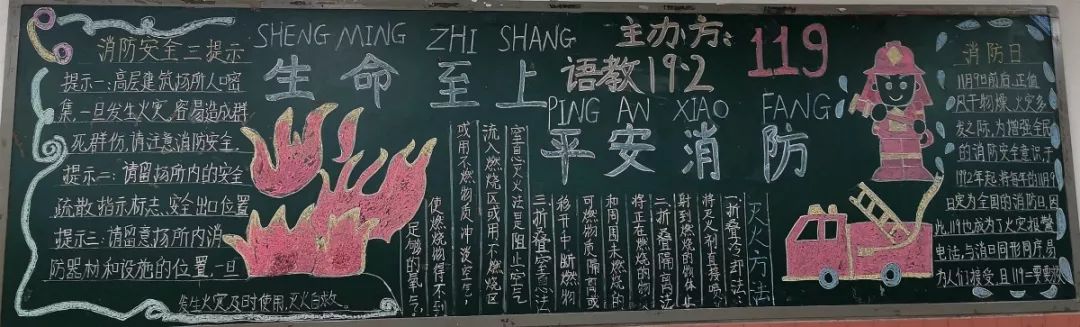 消防安全三提示
提示一:高层建筑场所人口密
集,一旦发生火灾,容易造成群
死群伤,请注意消防安全.
提示二:请留场所内的安全
疏散,指示标志、安全出口位置
提示三:请留意场所内消
防器材和设施的位置,一旦
发生火灾及时使用,灭火自救。
SHENG MING ZHI SHANG
生命至上
主办方:
语教19·2
119
PING AN XIAO FANG
平安消防
灭火方法
一.折叠冷却法:
将灭火剂直接喷
射到燃烧的物体上
二.折叠隔离法
将正在燃烧的物
和周围未燃烧的
可燃物质隔离或
移开中断燃物
三.折叠窒息法
窒息灭火法是阻止空气
流入燃烧区或用不燃烧区
或用不燃物质冲淡空气,
使燃烧物得不到
足够的氧气,
消防日
11月9日前后,正值
风干物燥、火灾多
发之际,为增强全民
的消防安全意识于
1992年起,将每年的11月9
日定为全国的消防日,因
此,119也成为了火灾报警
电话,与消日同形同序,易
为人们接受,且119一